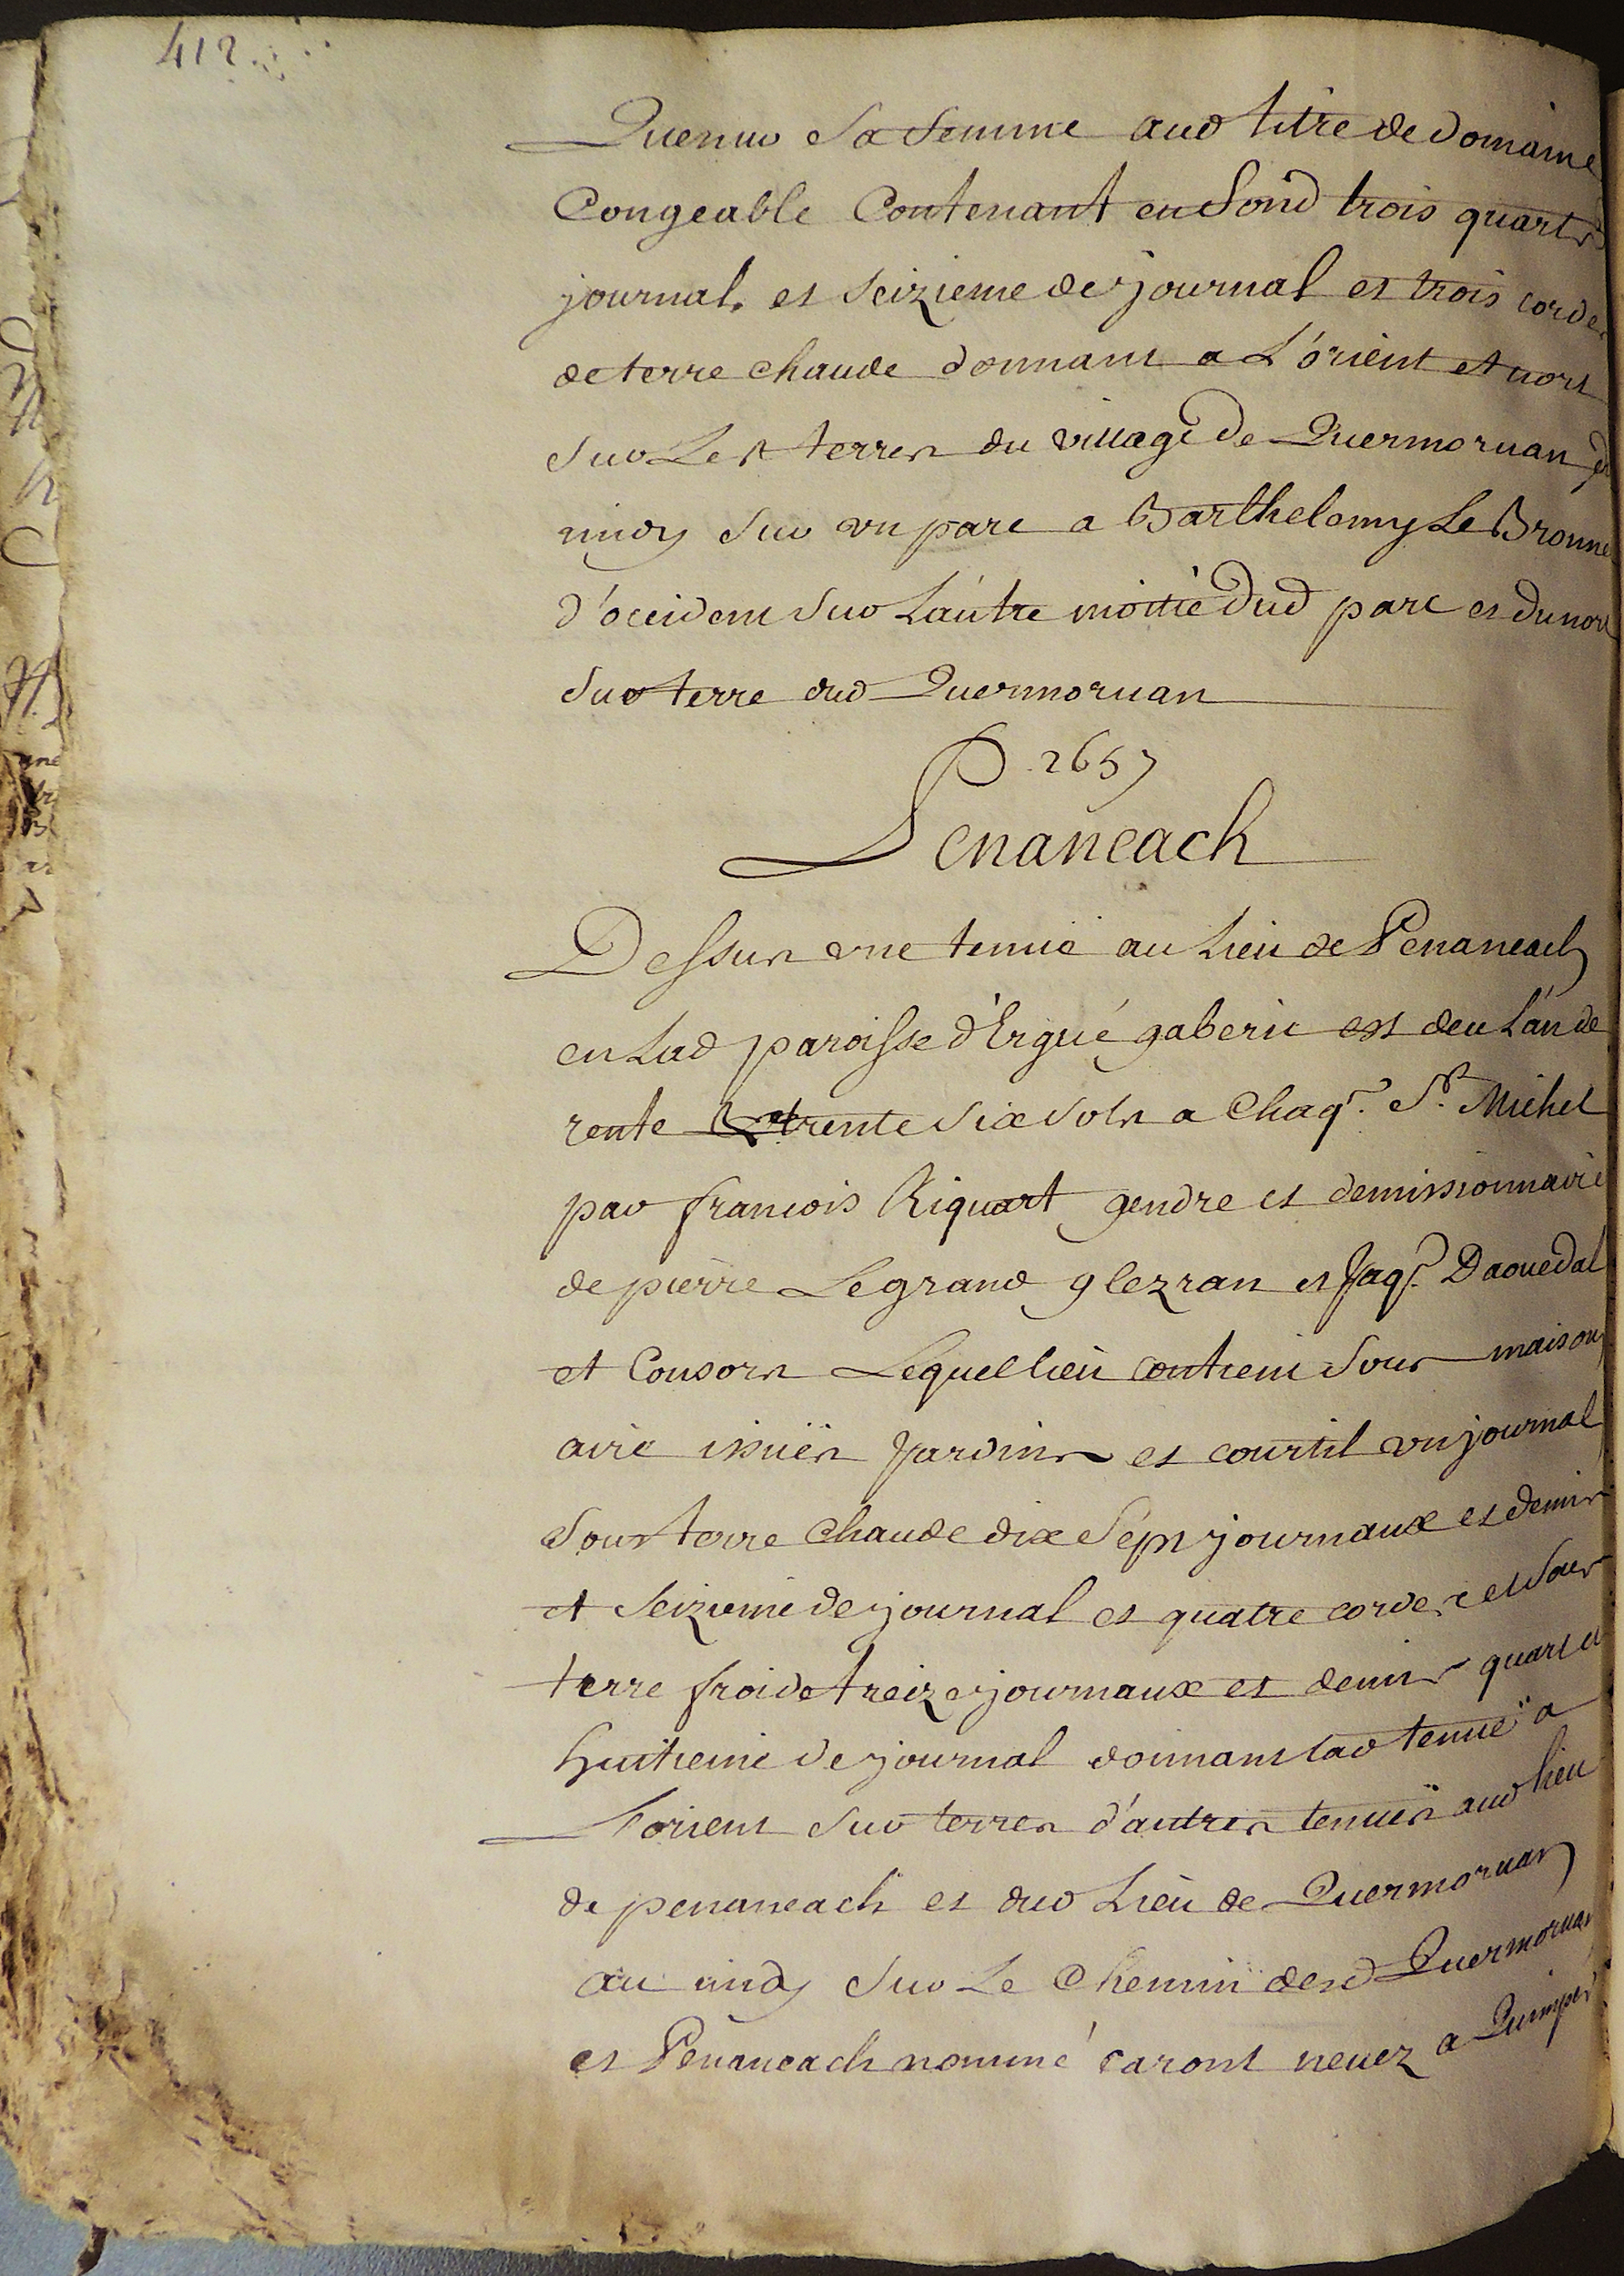 412
Quenw sa femme aud titre de domaine
Congeable Contenant en fond trois quarts
journal, et seizieme de journal et trois cordes
de terre chaude donnant a L'orient et nort
sur Les terres du village de Quermoruan et
midy sur un parc a Barthelemy Le Bronne
d'occident sur L'autre moitié dud parc et du nort
sur terre dud Quermoruan
P. 2657
Penaneach
Dessus une tenüe au Lieu de Penaneach
en Lad paroisse d'Ergué gaberic est deu L'an de
rente trente six sols a Chaqe. St. Michel
par francois Riquart gendre et demissionnaire
de pierre Le grand glezran et Jaqs. Daouedal
et Consors Lequel lieu contient sous maison
aire issuës Jardins et courtil un journal
sous terre chaude dix sept journaux et demis
et seizieme de journal et quatre cordes et sous
terre froide treize journaux et demis quart et
huitieme de journal donnant lad tenuë a
L'orient sur terres d'autres tenuës aud lieu
de penaneach et dud Lieu de Quermoruan
au midy sur Le Chemin desd Quermoruan
et Penaneach nommé caront neuez a Quimper